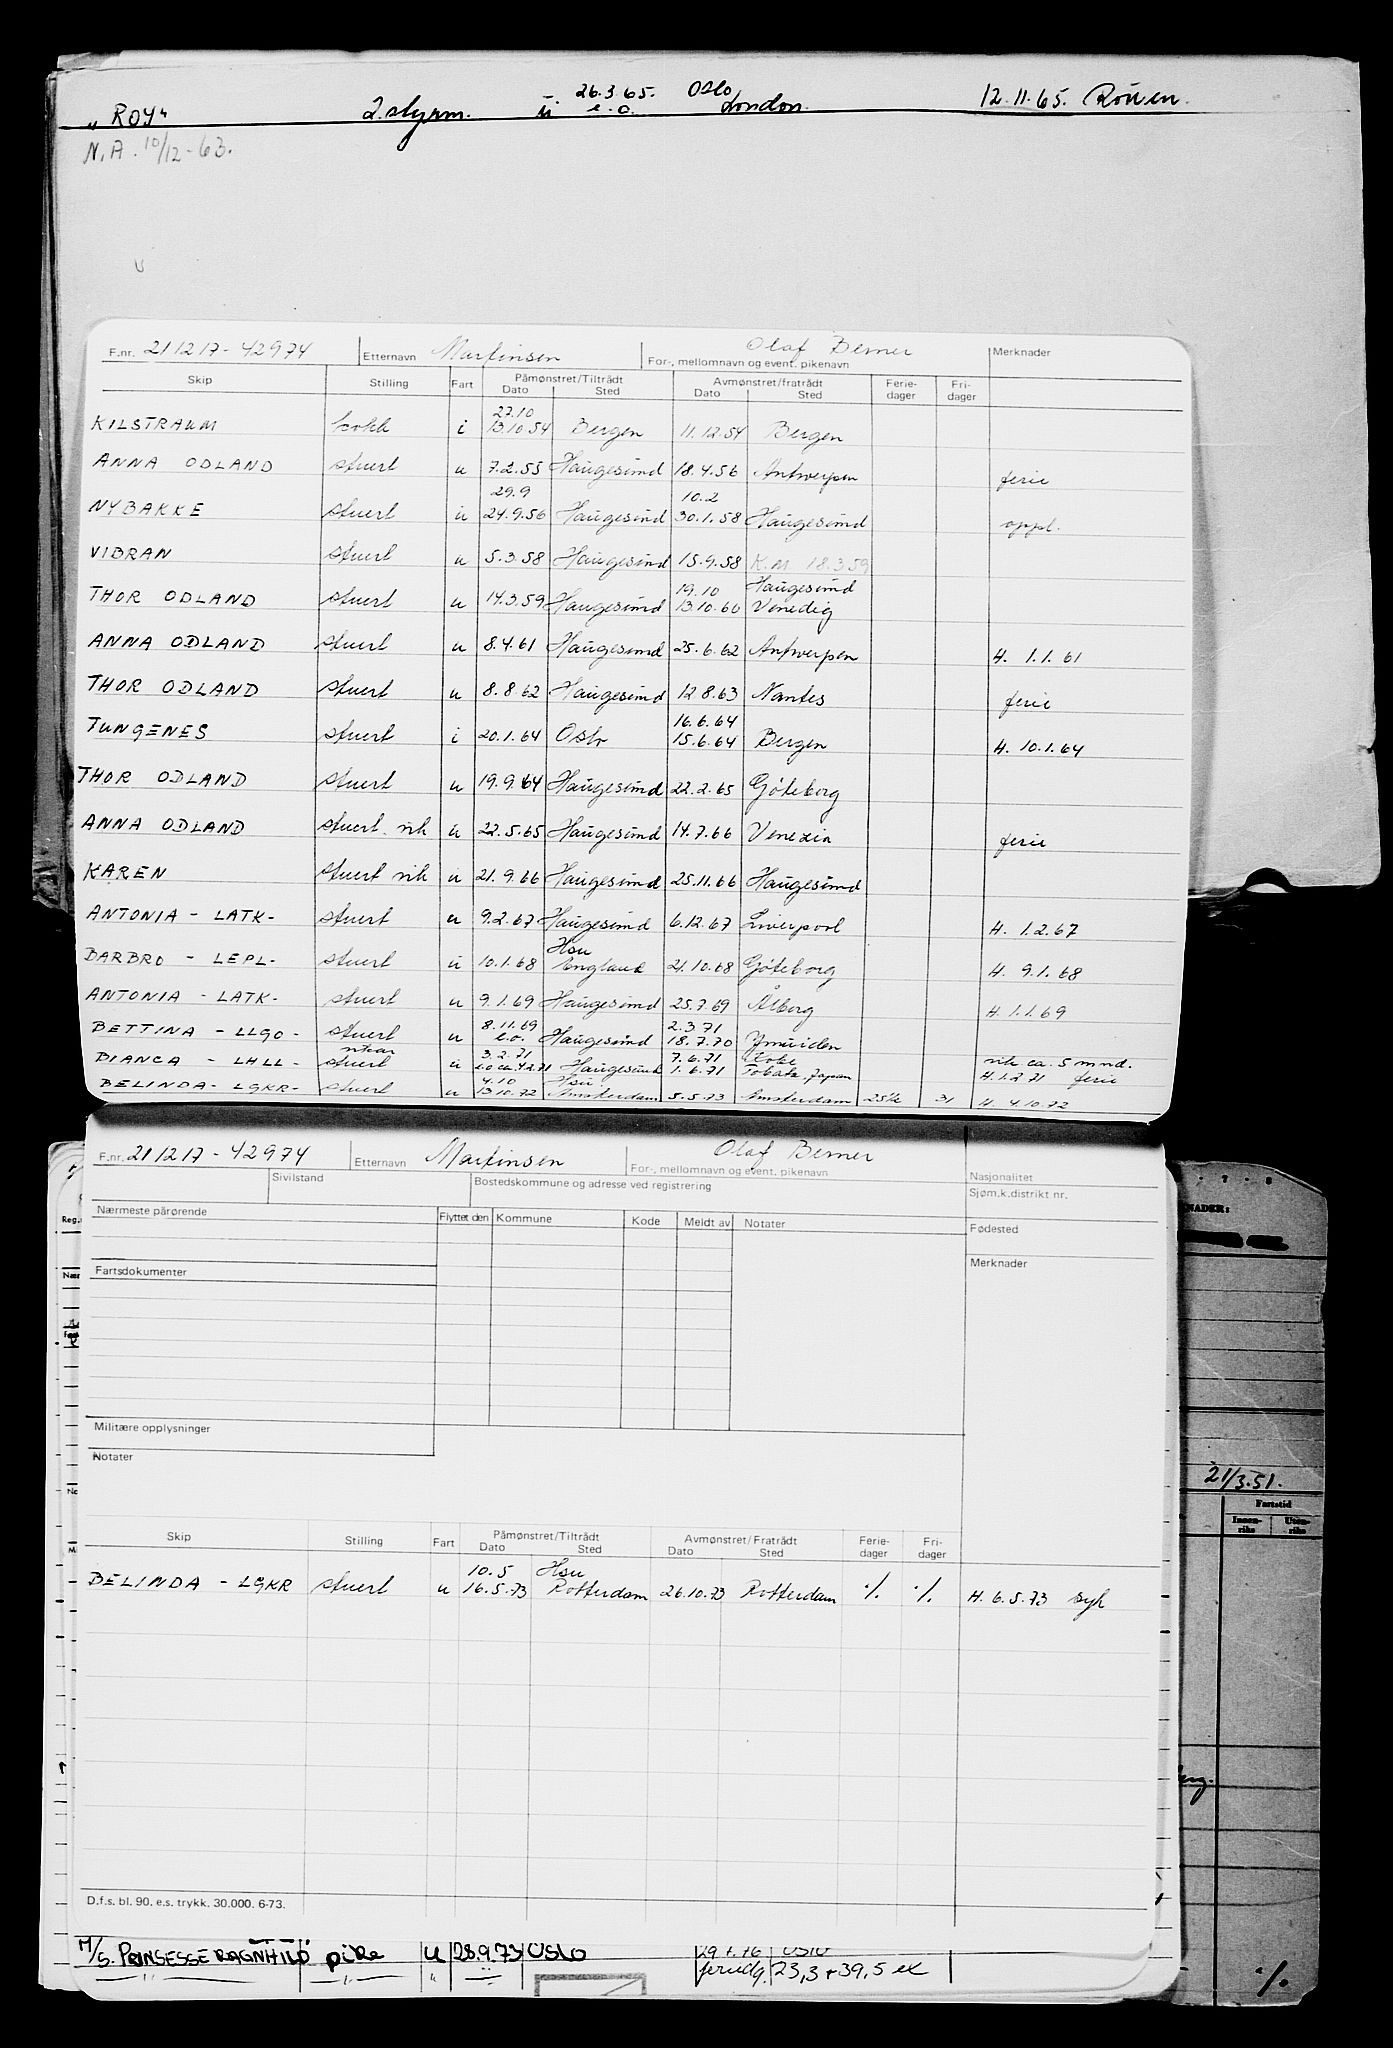 "ROY" 2.styrm. ü 26.3.65. e.o. Oslo London. 12.11.65. Rouen.
N.A. 10/12-63.
F.nr. 211217-42974 Etternavn Martinsen Olaf Berner For-, mellomnavn og event. pikenavn Merknader
Skip Stilling Fart Påmønstret/Tiltrådt Dato Sted Avmønstret/fratrådt Dato Sted Ferie-dager Fri-dager
27.10
KILSTRAUM kokk i 13.10.54 Bergen 11.12.54 Bergen
ANNA ODLAND stuert u 7.2.55 Haugesund 18.4.56 Antwerpen ferie
29.9 10.2
NYBAKKE stuert u 24.9.56 Haugesund 30.1.58 Haugesund oppl.
VIBRAN stuert u 5.3.58 Haugesund 15.9.58 K.M. 18.3.59
19.10 Haugesund
THOR ODLAND stuert u 14.3.59 Haugesund 13.10.60 Venedig
ANNA ODLAND stuert u 8.4.61 Haugesund 25.6.62 Antwerpen H. 1.1.61
THOR ODLAND stuert u 8.8.62 Haugesund 12.8.63 Nantes ferie
16.6.64
TUNGENES stuert i 20.1.64 Oslo 15.6.64 Bergen H. 10.1.64
THOR ODLAND stuert u 19.9.64 Haugesund 22.2.65 Göteborg
ANNA ODLAND stuert vik u 22.5.65 Haugesund 14.7.66 Venezia ferie
KAREN stuert vik u 21.9.66 Haugesund 25.11.66 Haugesund
ANTONIA - LATK- stuert u 9.2.67 Haugesund 6.12.67 Liverpool H. 1.2.67
Hsu
BARBRO - LEPL- stuert u 10.1.68 England 21.10.68 Göteborg H. 9.1.68
ANTONIA - LATK- stuert u 9.1.69 Haugesund 25.7.69 Ålborg H. 1.1.69
8.11.69 2.3.71
BETTINA - LLGO- stuert u e.o. Haugesund 18.7.70 Ymuiden vik ca. 5 mnd.
vikar 3.2.71 7.6.71
BIANCA - LHLL- stuert u e.o ca. 4.2.71 Haugesund 1.6.71 Tobata, Japan H. 1.2.71 ferie
4.10 Hsu
BELINDA- LGKR- stuert u 13.10.72 Amsterdam 5.5.73 Amsterdam 25½ 31 H. 4.10.72
F.nr. 211217-42974 Etternavn Martinsen Olaf Berner For-, mellomnavn og event. pikenavn Nasjonalitet
Sivilstand Bostedskommune og adresse ved registrering Sjøm.k.distrikt nr.
Nærmeste pårørende Flyttet den Kommune Kode Meldt av Notater Fødested
Fartsdokumenter Merknader
Militære opplysninger
Notater
21/3.51.
Fartstid
Innen-riks Uten-riks
Skip Stilling Fart Påmønstret/Tiltrådt Dato Sted Avmønstret/Fratrådt Dato Sted Ferie-dager Fri-dager
10.5 Hsu
BELINDA - LGKR stuert u 16.5.73 Rotterdam 26.10.73 Rotterdam ·/. ·/. H. 6.5.73 syk
D.f.s. bl. 90. e.s. trykk. 30.000. 6-73.
M/S. PRINSESSE RAGNHILD pike u 28.9.73 OSLO
23,3 + 39,5 ex
·/.